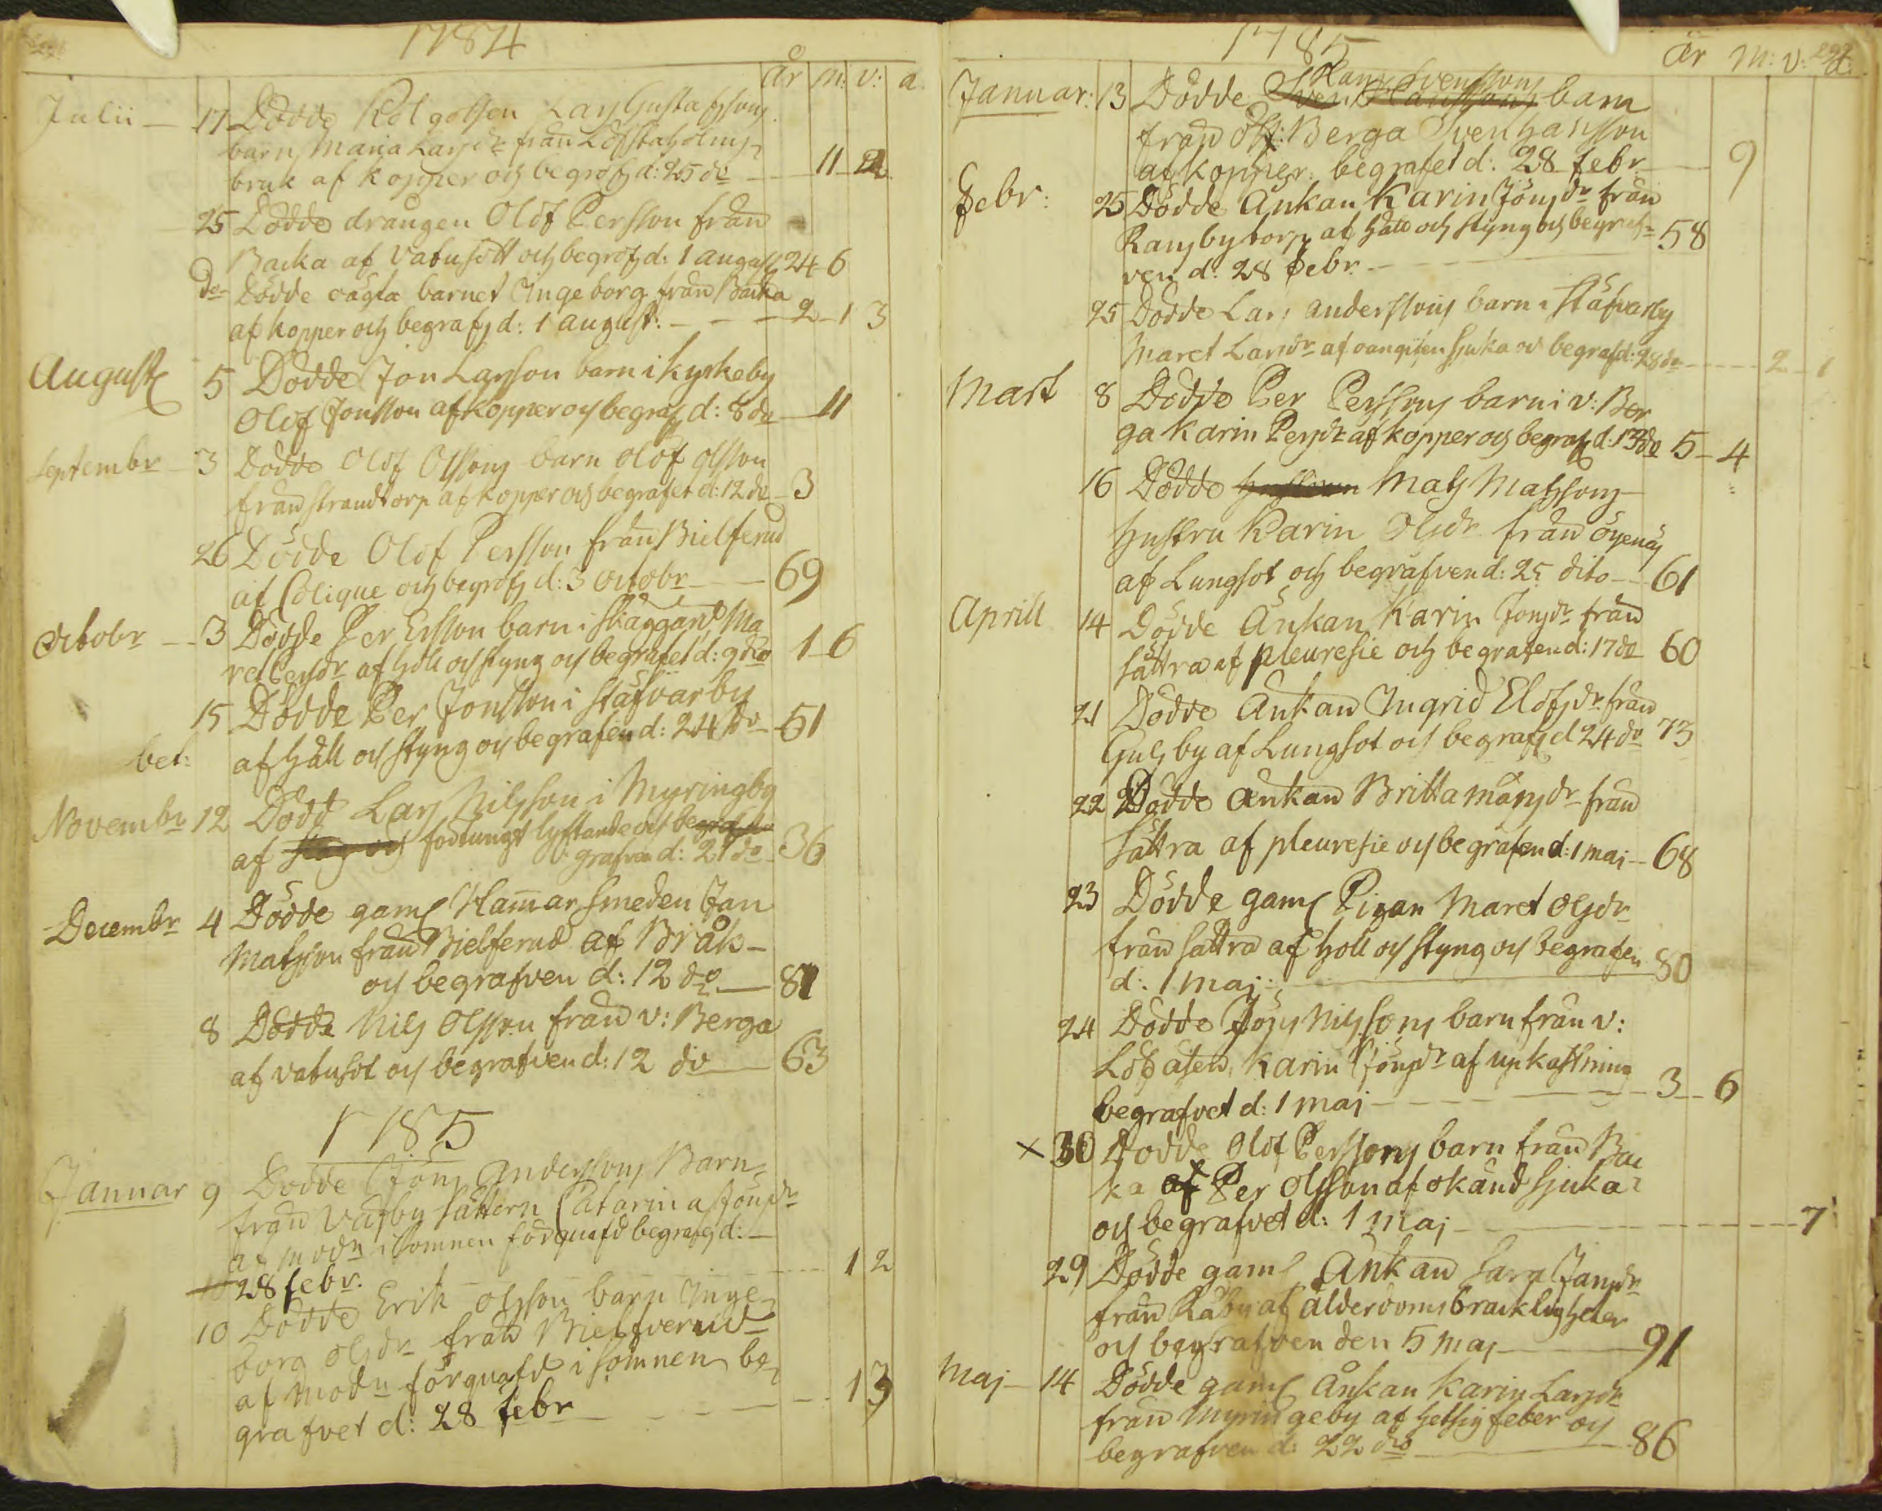 1784
År m: v: d.
Julii 17 Dödde Lars Gustafssons
barn Maria Larsdr från Löfstaholms
bruk af kopper och begrofs d: 25 do 11 2
25 Dödde drängen Olof Persson från
Backa af Vatusott och begrofs d: 1 august 24 6
do Dödde oägta barnet Ingeborg från Backa
af kopper och begrafs d: 1 august. 2 1 3
August 5 Dödde Jon Larsson barn i kyrkeby
Olof Jonsson af kopper och begrafs d: 8 do 11
Septembr 3 Dödde Olof Olssons barn Olof Olsson
från Strandtorp af kopper och begrafet d: 12 do 3
26 Dödde Olof Persson från Bielferud
af Colique och begrofs d: 3 octobr 69
Octobr 3 Dödde Per Ersson barn i Skäggard Ma
ret Persdr af håll och styng och begrafet d: 9 dito 1 6
15 Dödde Per Jonsson i Stäfvarby
af håll och styng och begrafen d: 24 do 51
bet:
Novembr 12 Dödd Lars Nilsson i Myringby
af för tungt lyftande och
begrafven d: 21 do 36
Decembr 4 Dödde gaml Hammarsmeden Jan
Matsson från Bielferud af Bråk
och begrafven d: 12 do 81
8 Dödde Nils Olsson från v: Berga
af vatusot och begrafven d: 12 do 63
1785
Januar 9 Dödde Jöns Anderssons Barn
från Väsby sättern Catarina Jönsdr
af modn i sömnen förquafd begrafs d:
28 febr. 1 2
10 Dödde Erik Olsson barn Inge
borg Olsdr från Bielfverud
af modn förquafd i sömnen be
grafvet d: 28 febr 13
1785
År M: v: d.
Januar: 13 Dödde Hans Svenssons barn
från Öst: Berga Sven Hansson
af kopper. begrafet d: 28 febr 9
Febr: 25 Dödde Änkan Karin Jönsdr från
Ransbytorp af håll och styng och begraf
ven d: 28 Febr. 58
25 Dödde Lars Anderssons barn i Stäfvarby
Maret Larsdr af oangifen sjuka och begrafd: 28 do 2 1
Mart 8 Dödde Per Perssons barn i v: Ber
ga Karin Persdr af kopper och begrafs d: 13 do 5 4
16 Dödde Mats Matssons
hustru Karin Olsdr från öyenäs
af Lungsot och begrafven d: 25 dito 61
Aprill 14 Dödde Änkan Karin Jonsdr från
Sättra af pleuresie och begrafen d: 17 do 60
21 Dödde Änkan Ingrid Elofsdr från
Gulsby af Lungsot och begrafs d 24 do 73
22 Dödde Änkan Britta Månsdr från
Sättra af pleuresie och begrafen d: 1 maj 68
23 Dödde gaml Pigan Maret Olsdr
från Sättra af håll och styng och begrafen
d: 1 maj 80
24 Dödde Jöns Nilssons barn från v:
Löfåsen, Karin Jönsdr af upkastning
begrafvet d: 1 maj 3 6
× 30 Dödde Olof Perssons barn från Bac
ka Per Olsson af okänd sjuka
och begrafvet d: 1 maj 7
29 Dödde gaml Änkan Sara Jansdr
från Råby af ålderdoms bräckligheter
och begrafven den 5 maj 91
Maj 14 Dödde gaml Änkan Karin Larsdr
från Myringeby af hetsig feber och
begrafven d: 22 dito 86